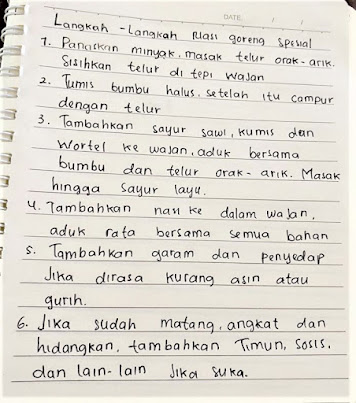 DATE: / /
Langkah - Langkah Nasi goreng spesial
1. Panaskan minyak, masak telur orak - arik.
Sisihkan telur di tepi wajan
2. Tumis bumbu halus, setelah itu campur
dengan telur
3. Tambahkan sayur sawi, kumis dan
wortel ke wajan, aduk bersama
bumbu dan telur orak - arik. Masak
hingga sayur layu.
4. Tambahkan nasi ke dalam wajan,
aduk rata bersama semua bahan
5. Tambahkan garam dan penyedap
Jika dirasa kurang asin atau
gurih.
6. Jika sudah matang, angkat dan
hidangkan, tambahkan Timun, sosis,
dan lain-lain Jika suka.